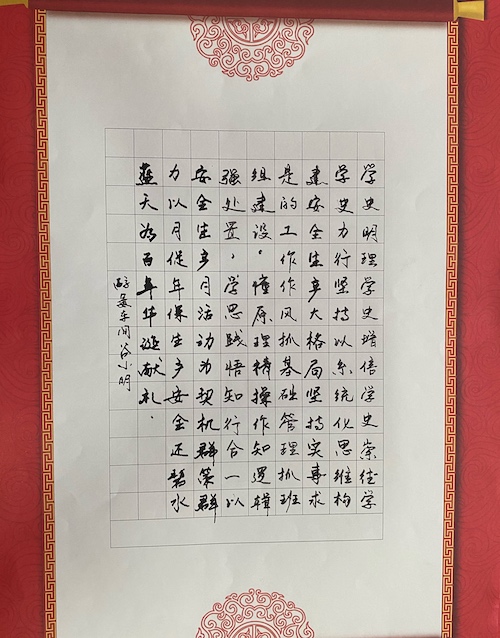 学史明理学史增信学史崇德学
学史力行坚持以系统化思维构
建安全生产大格局坚持实事求
是的工作作风抓基础管理抓班
组建设。懂原理精操作知逻辑
强处置，学思践悟知行合一以
安全生产月活动为契机群策群
力以月促年保生产安全还碧水
蓝天为百年华诞献礼.
车间谷小明